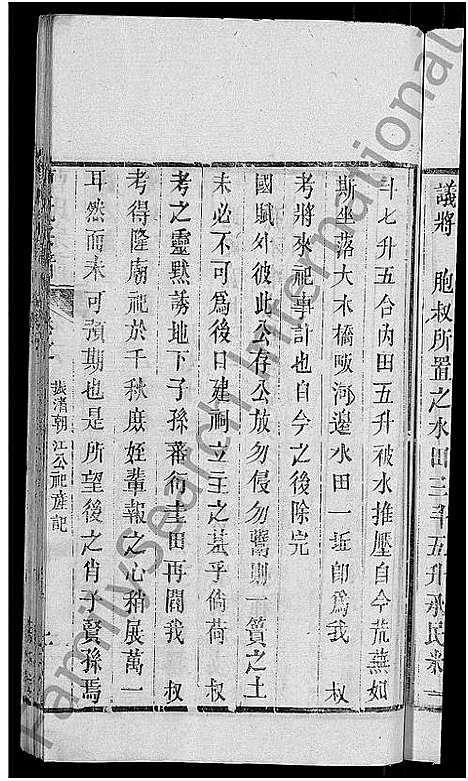 議將　胞叔所置之水田三斗五升承民米一
斗七升五合內田五升被水推壓自今荒蕪如
斯坐落大水橋畈河邊水田一坵卽爲我　叔
考將來祀事計也自今之後除完
國賦外彼此公存公放勿侵勿鬻則一簣之土
未必不可爲後日建祠立主之基乎倘荷　叔
考之靈默誘地下子孫蕃衍圭田再闢我　叔
考得隆廟祀於千秋庶姪輩報之心稍展萬一
耳然而未可預期也是所望後之肖子賢孫焉
清朝江公祀產記
FamilySearch International